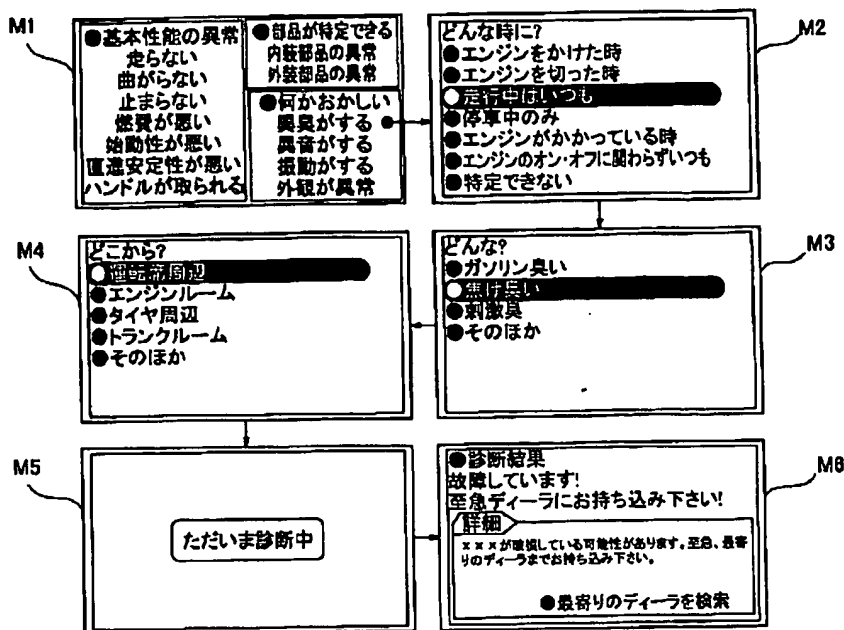 M1
●基本性能の異常
走らない
曲がらない
止まらない
燃費が悪い
始動性が悪い
直進安定性が悪い
ハンドルが取られる
●部品が特定できる
内装部品の異常
外装部品の異常
●何かおかしい
異臭がする
異音がする
振動がする
外観が異常
M2
どんな時に?
●エンジンをかけた時
●エンジンを切った時
走行中はいつも
●停車中のみ
●エンジンがかかっている時
●エンジンのオン・オフに関わらずいつも
●特定できない
M4
どこから?
運転席周辺
●エンジンルーム
●タイヤ周辺
●トランクルーム
●そのほか
M3
どんな?
●ガソリン臭い
焦げ臭い
●刺激臭
●そのほか
M5
ただいま診断中
M6
●診断結果
故障しています!
至急ディーラにお持ち込み下さい!
詳細
×××が破損している可能性があります。至急、最寄
りのディーラまでお持ち込み下さい。
●最寄りのディーラを検索